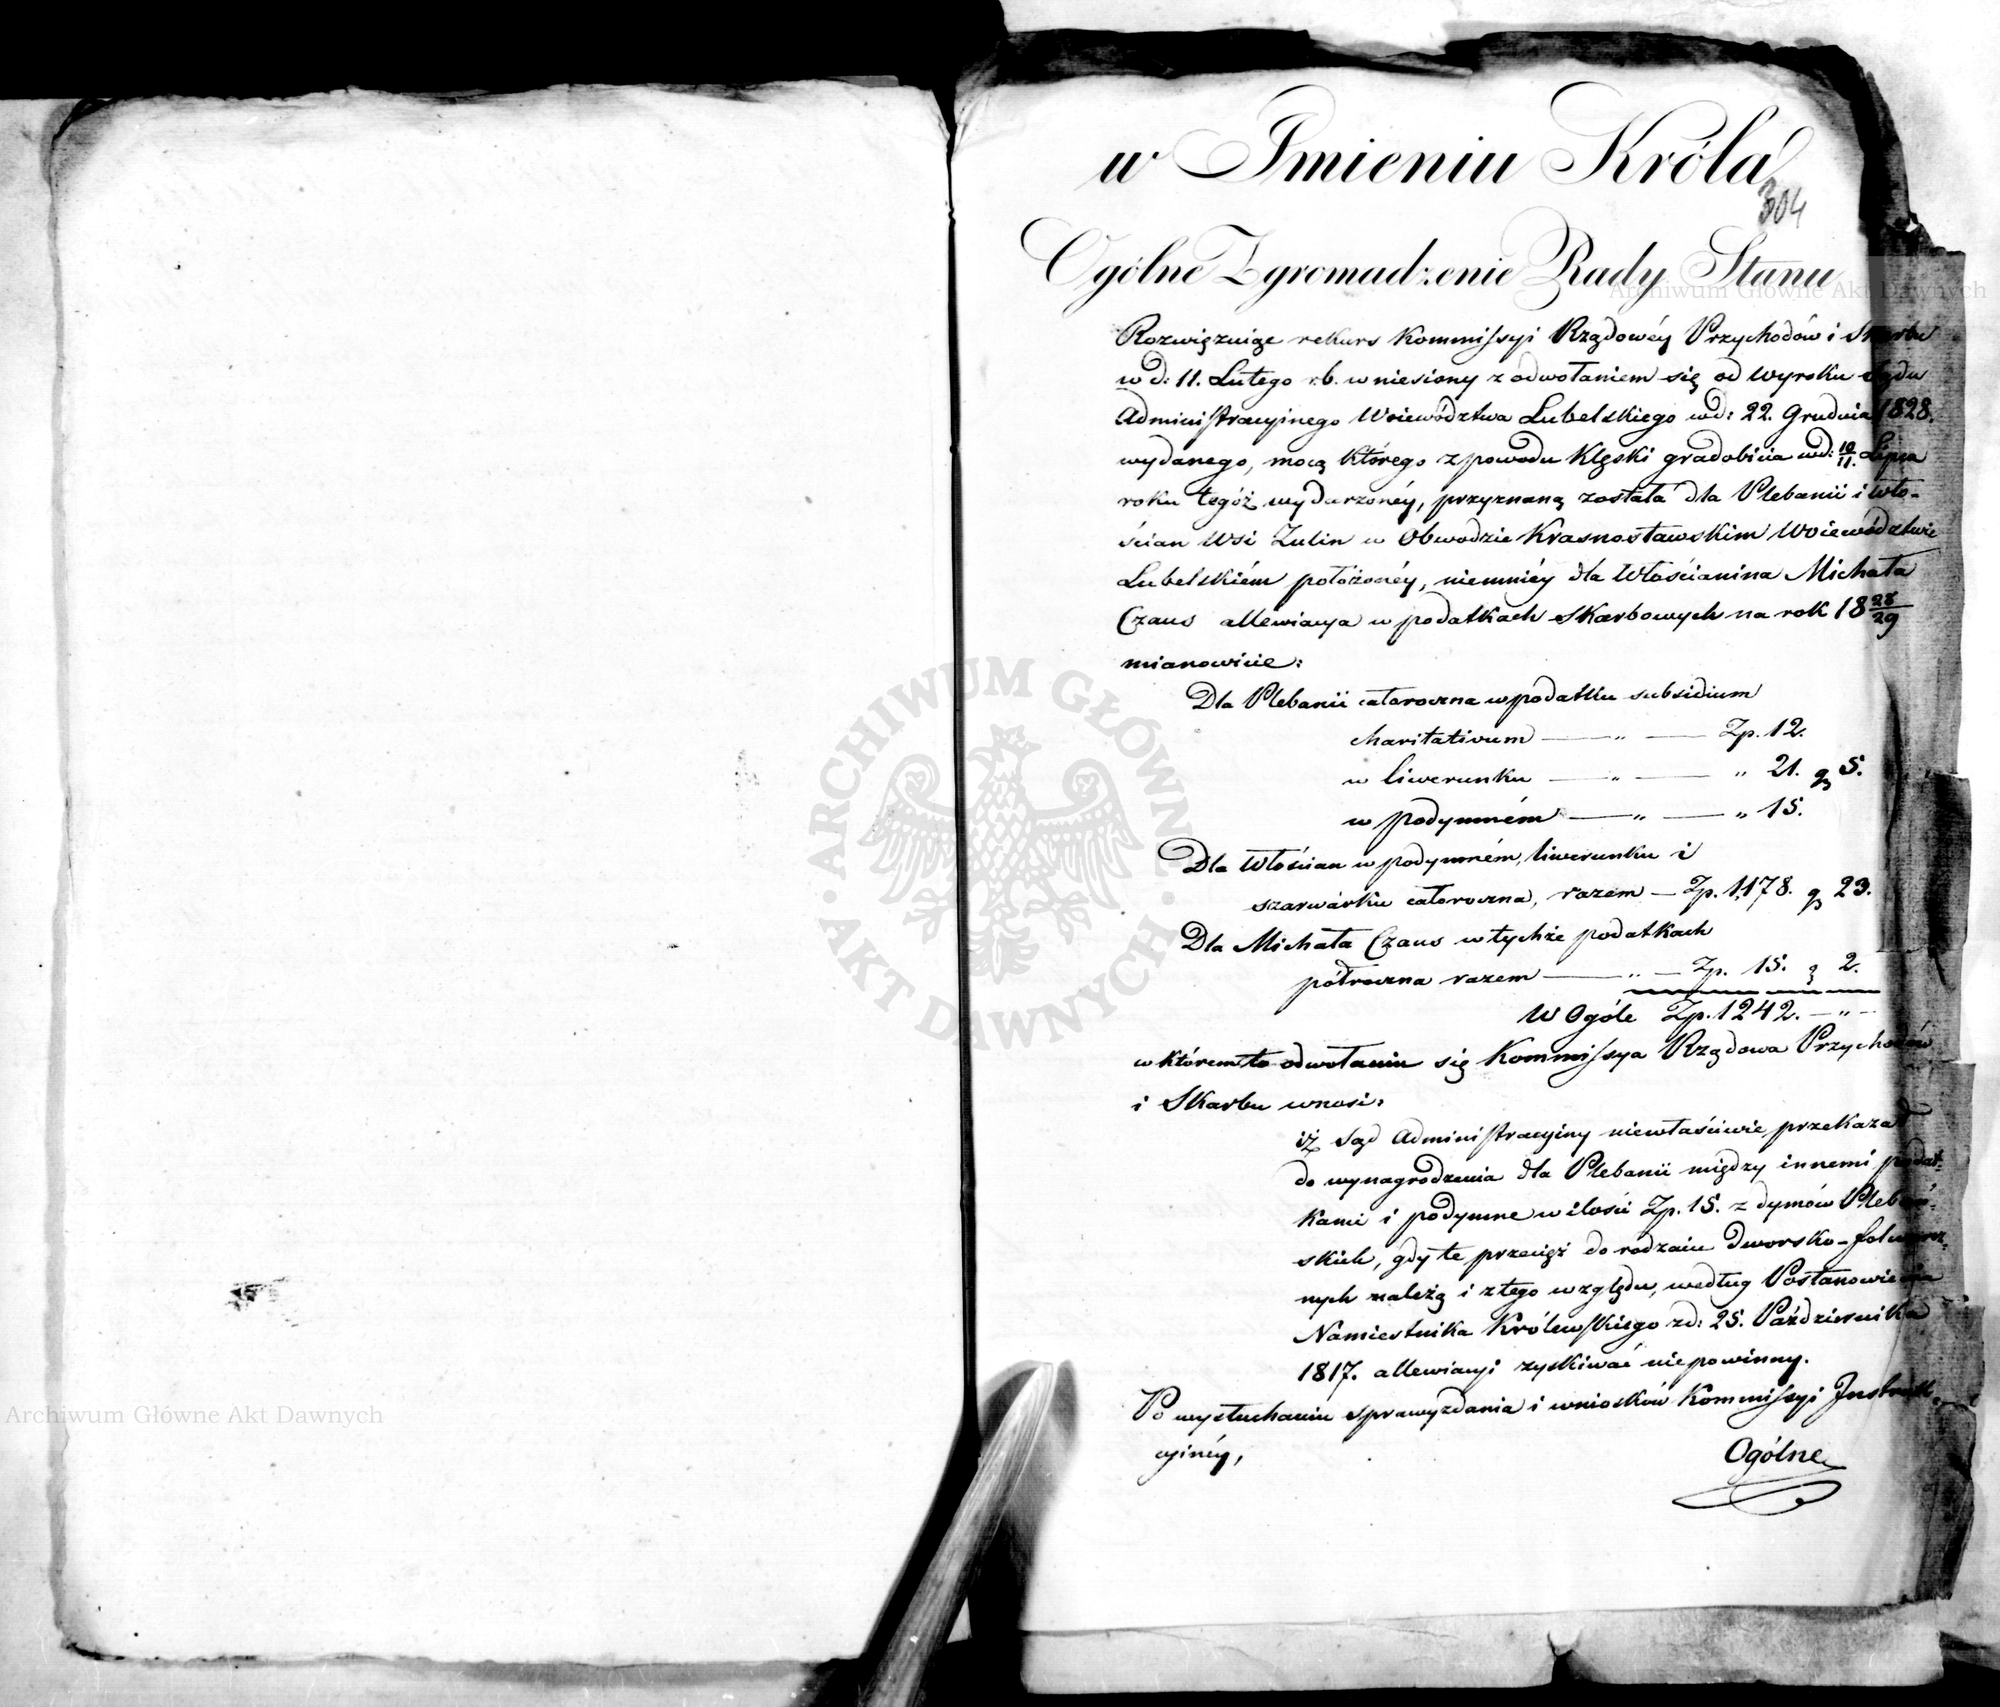 w Imieniu Króla
304
Ogólne Zgromadzenie Rady Stanu
Rozwięzuiąc rekurs Kommissyi Rządowéy Przychodów i Skarbu
w d: 11. Lutego r.b. wniesiony z odwołaniem się od wyroku Sądu
Administracyinego Woiewództwa Lubelskiego w d: 22. Grudnia 1828.
wydanego, mocą którego z powodu klęski gradobicia w d: 10/11. Lipca
roku tegóż wydarzonéy, przyznaną została dla Plebanii i Wło-
ścian Wsi Zulin w Obwodzie Krasnostawskim Woiewództwie
Lubelskiém położonéy, niemniéy dla Włościanina Michała
Czaus allewiacya w podatkach skarbowych na rok 18 28/29
mianowicie:
Dla Plebanii całoroczna w podatku subsidium
charitativum — „ — Zp. 12.
w liwerunku — „ — „ 21. g 5.
w podymném — „ — „ 15.
Dla Włościan w podymném, liwerunku i
szarwarku całoroczna, razem — Zp. 1,178. g 23.
Dla Michała Czaus w tychże podatkach
półroczna razem — „ — Zp. 15. g 2.
W Ogóle Zp. 1242. — „ —
w którem to odwołaniu się Kommissya Rządowa Przychodów
i Skarbu wnosi:
iż Sąd Administracyiny niewłaściwie przekazał
do wynagrodzenia dla Plebanii między innemi podat-
kami i podymne w ilości Zp. 15. z dymów Plebań-
skich, gdy te przecięż do rodzaiu dworsko-folwarcz-
nych należą i z tego względu, według Postanowienia
Namiestnika Królewskiego z d: 25. Października
1817. allewiacyi zyskiwać nie powinny.
Po wysłuchaniu sprawyzdania i wniosków Kommissyi Instruk-
cyinéy,
Ogólne
Archiwum Główne Akt Dawnych
ARCHIWUM GŁÓWNE AKT DAWNYCH
Archiwum Główne Akt Dawnych